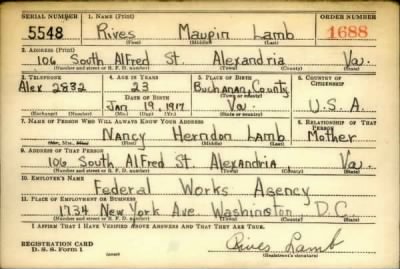 SERIAL NUMBER 1. NAME (Print) ORDER NUMBER
5548 Rives Maupin Lamb 1688
(First) (Middle) (Last)
2. ADDRESS (Print)
106 South Alfred St. Alexandria Va.
(Number and street or R. F. D. number) (Town) (County) (State)
3. TELEPHONE 4. AGE IN YEARS 5. PLACE OF BIRTH 6. COUNTRY OF CITIZENSHIP
Alex 2832 23 Buchanan, County
DATE OF BIRTH (Town or county)
Jan 19, 1917 Va. U.S.A.
(Exchange) (Number) (Mo.) (Day) (Yr.) (State or country)
7. NAME OF PERSON WHO WILL ALWAYS KNOW YOUR ADDRESS 8. RELATIONSHIP OF THAT PERSON
Nancy Herndon Lamb Mother
(First) (Middle) (Last)
9. ADDRESS OF THAT PERSON
106 South Alfred St. Alexandria Va.
(Number and street or R. F. D. number) (Town) (County) (State)
10. EMPLOYER'S NAME
Federal Works Agency
11. PLACE OF EMPLOYMENT OR BUSINESS
1734 New York Ave. Washington D.C.
(Number and street or R. F. D. number) (Town) (County) (State)
I AFFIRM THAT I HAVE VERIFIED ABOVE ANSWERS AND THAT THEY ARE TRUE.
REGISTRATION CARD
D. S. S. Form 1
Rives Lamb
(Registrant's signature)